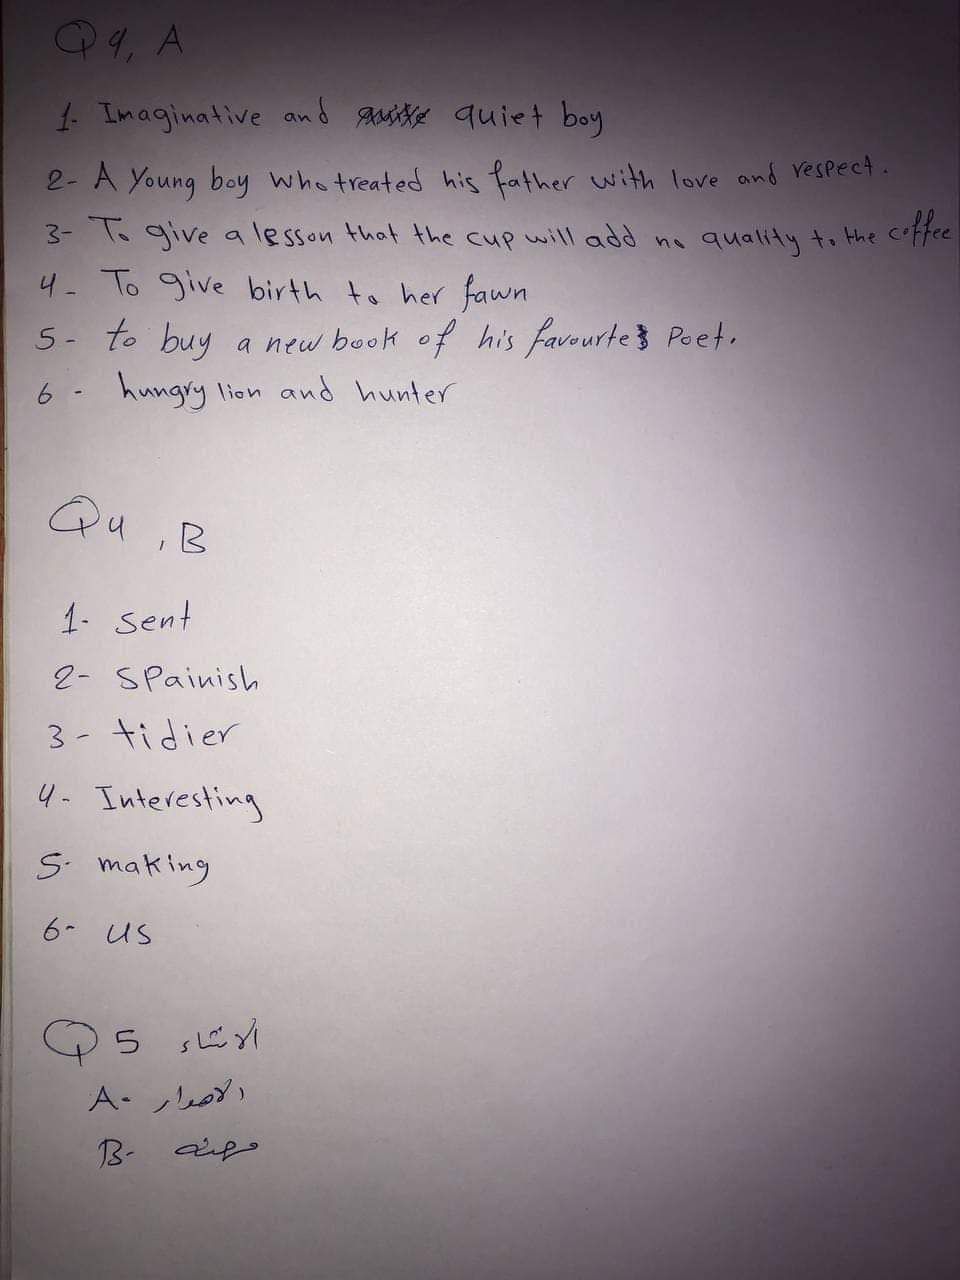 Q 4, A
1- Imaginative and quiet boy
2- A Young boy who treated his father with love and respect.
3- To give a lesson that the cup will add no quality to the coffee
4- To give birth to her fawn
5- to buy a new book of his favourtes Poet.
6- hungry lion and hunter
Q4, B
1- Sent
2- SPainish
3- tidier
4- Interesting
5- making
6- us
Q5 الانشاء
A- الاصرار
B- مهنة